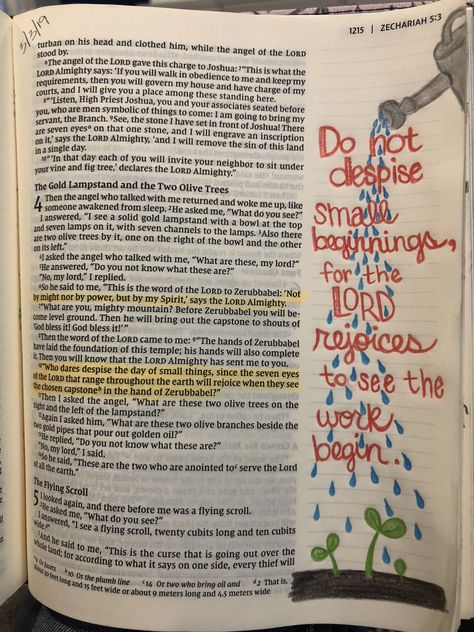 3/3/19
1215 | ZECHARIAH 5:3
turban on his head and clothed him, while the angel of the LORD
stood by.
⁶The angel of the LORD gave this charge to Joshua: ⁷“This is what the
LORD Almighty says: ‘If you will walk in obedience to me and keep my
requirements, then you will govern my house and have charge of my
courts, and I will give you a place among these standing here.
⁸“‘Listen, High Priest Joshua, you and your associates seated before
you, who are men symbolic of things to come: I am going to bring my
servant, the Branch. ⁹See, the stone I have set in front of Joshua! There
are seven eyesᵃ on that one stone, and I will engrave an inscription
on it,’ says the LORD Almighty, ‘and I will remove the sin of this land
in a single day.
¹⁰“‘In that day each of you will invite your neighbor to sit under
your vine and fig tree,’ declares the LORD Almighty.”
The Gold Lampstand and the Two Olive Trees
4 Then the angel who talked with me returned and woke me up, like
someone awakened from sleep. ²He asked me, “What do you see?”
I answered, “I see a solid gold lampstand with a bowl at the top
and seven lamps on it, with seven channels to the lamps. ³Also there
are two olive trees by it, one on the right of the bowl and the other
on its left.”
⁴I asked the angel who talked with me, “What are these, my lord?”
⁵He answered, “Do you not know what these are?”
“No, my lord,” I replied.
⁶So he said to me, “This is the word of the LORD to Zerubbabel: ‘Not
by might nor by power, but by my Spirit,’ says the LORD Almighty.
⁷“What are you, mighty mountain? Before Zerubbabel you will be-
come level ground. Then he will bring out the capstone to shouts of
‘God bless it! God bless it!’”
⁸Then the word of the LORD came to me: ⁹“The hands of Zerubbabel
have laid the foundation of this temple; his hands will also complete
it. Then you will know that the LORD Almighty has sent me to you.
¹⁰“Who dares despise the day of small things, since the seven eyes
of the LORD that range throughout the earth will rejoice when they see
the chosen capstoneᵇ in the hand of Zerubbabel?”
¹¹Then I asked the angel, “What are these two olive trees on the
right and the left of the lampstand?”
¹²Again I asked him, “What are these two olive branches beside the
two gold pipes that pour out golden oil?”
¹³He replied, “Do you not know what these are?”
“No, my lord,” I said.
¹⁴So he said, “These are the two who are anointed toᶜ serve the Lord
of all the earth.”
The Flying Scroll
5 I looked again, and there before me was a flying scroll.
²He asked me, “What do you see?”
I answered, “I see a flying scroll, twenty cubits long and ten cubits
wide.ᵈ”
³And he said to me, “This is the curse that is going out over the
whole land; for according to what it says on one side, every thief will
ᵃ 9 Or facets ᵇ 10 Or the plumb line ᶜ 14 Or two who bring oil and ᵈ 2 That is,
about 30 feet long and 15 feet wide or about 9 meters long and 4.5 meters wide
Do not
despise
small
beginnings,
for the
LORD
rejoices
to see the
work
begin.